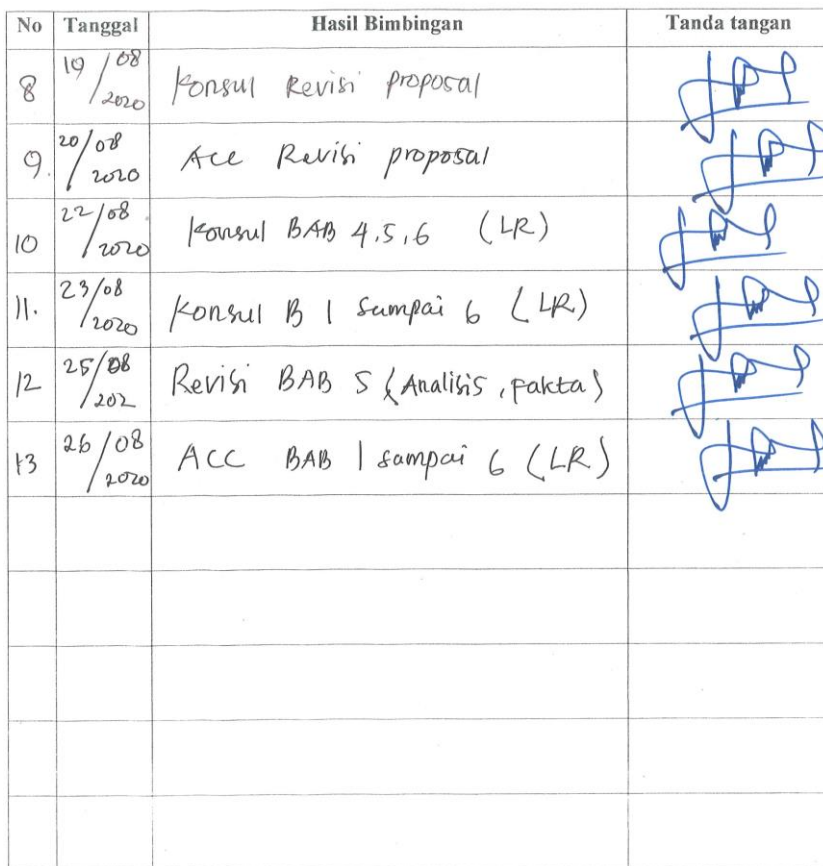 No Tanggal Hasil Bimbingan Tanda tangan
8 19/08/2020 Konsul Revisi proposal
9. 20/08/2020 Acc Revisi proposal
10 22/08/2020 Konsul BAB 4,5,6 (LR)
11. 23/08/2020 Konsul B 1 Sampai 6 (LR)
12 25/08/202 Revisi BAB 5 (Analisis, Fakta)
13 26/08/2020 ACC BAB 1 sampai 6 (LR)